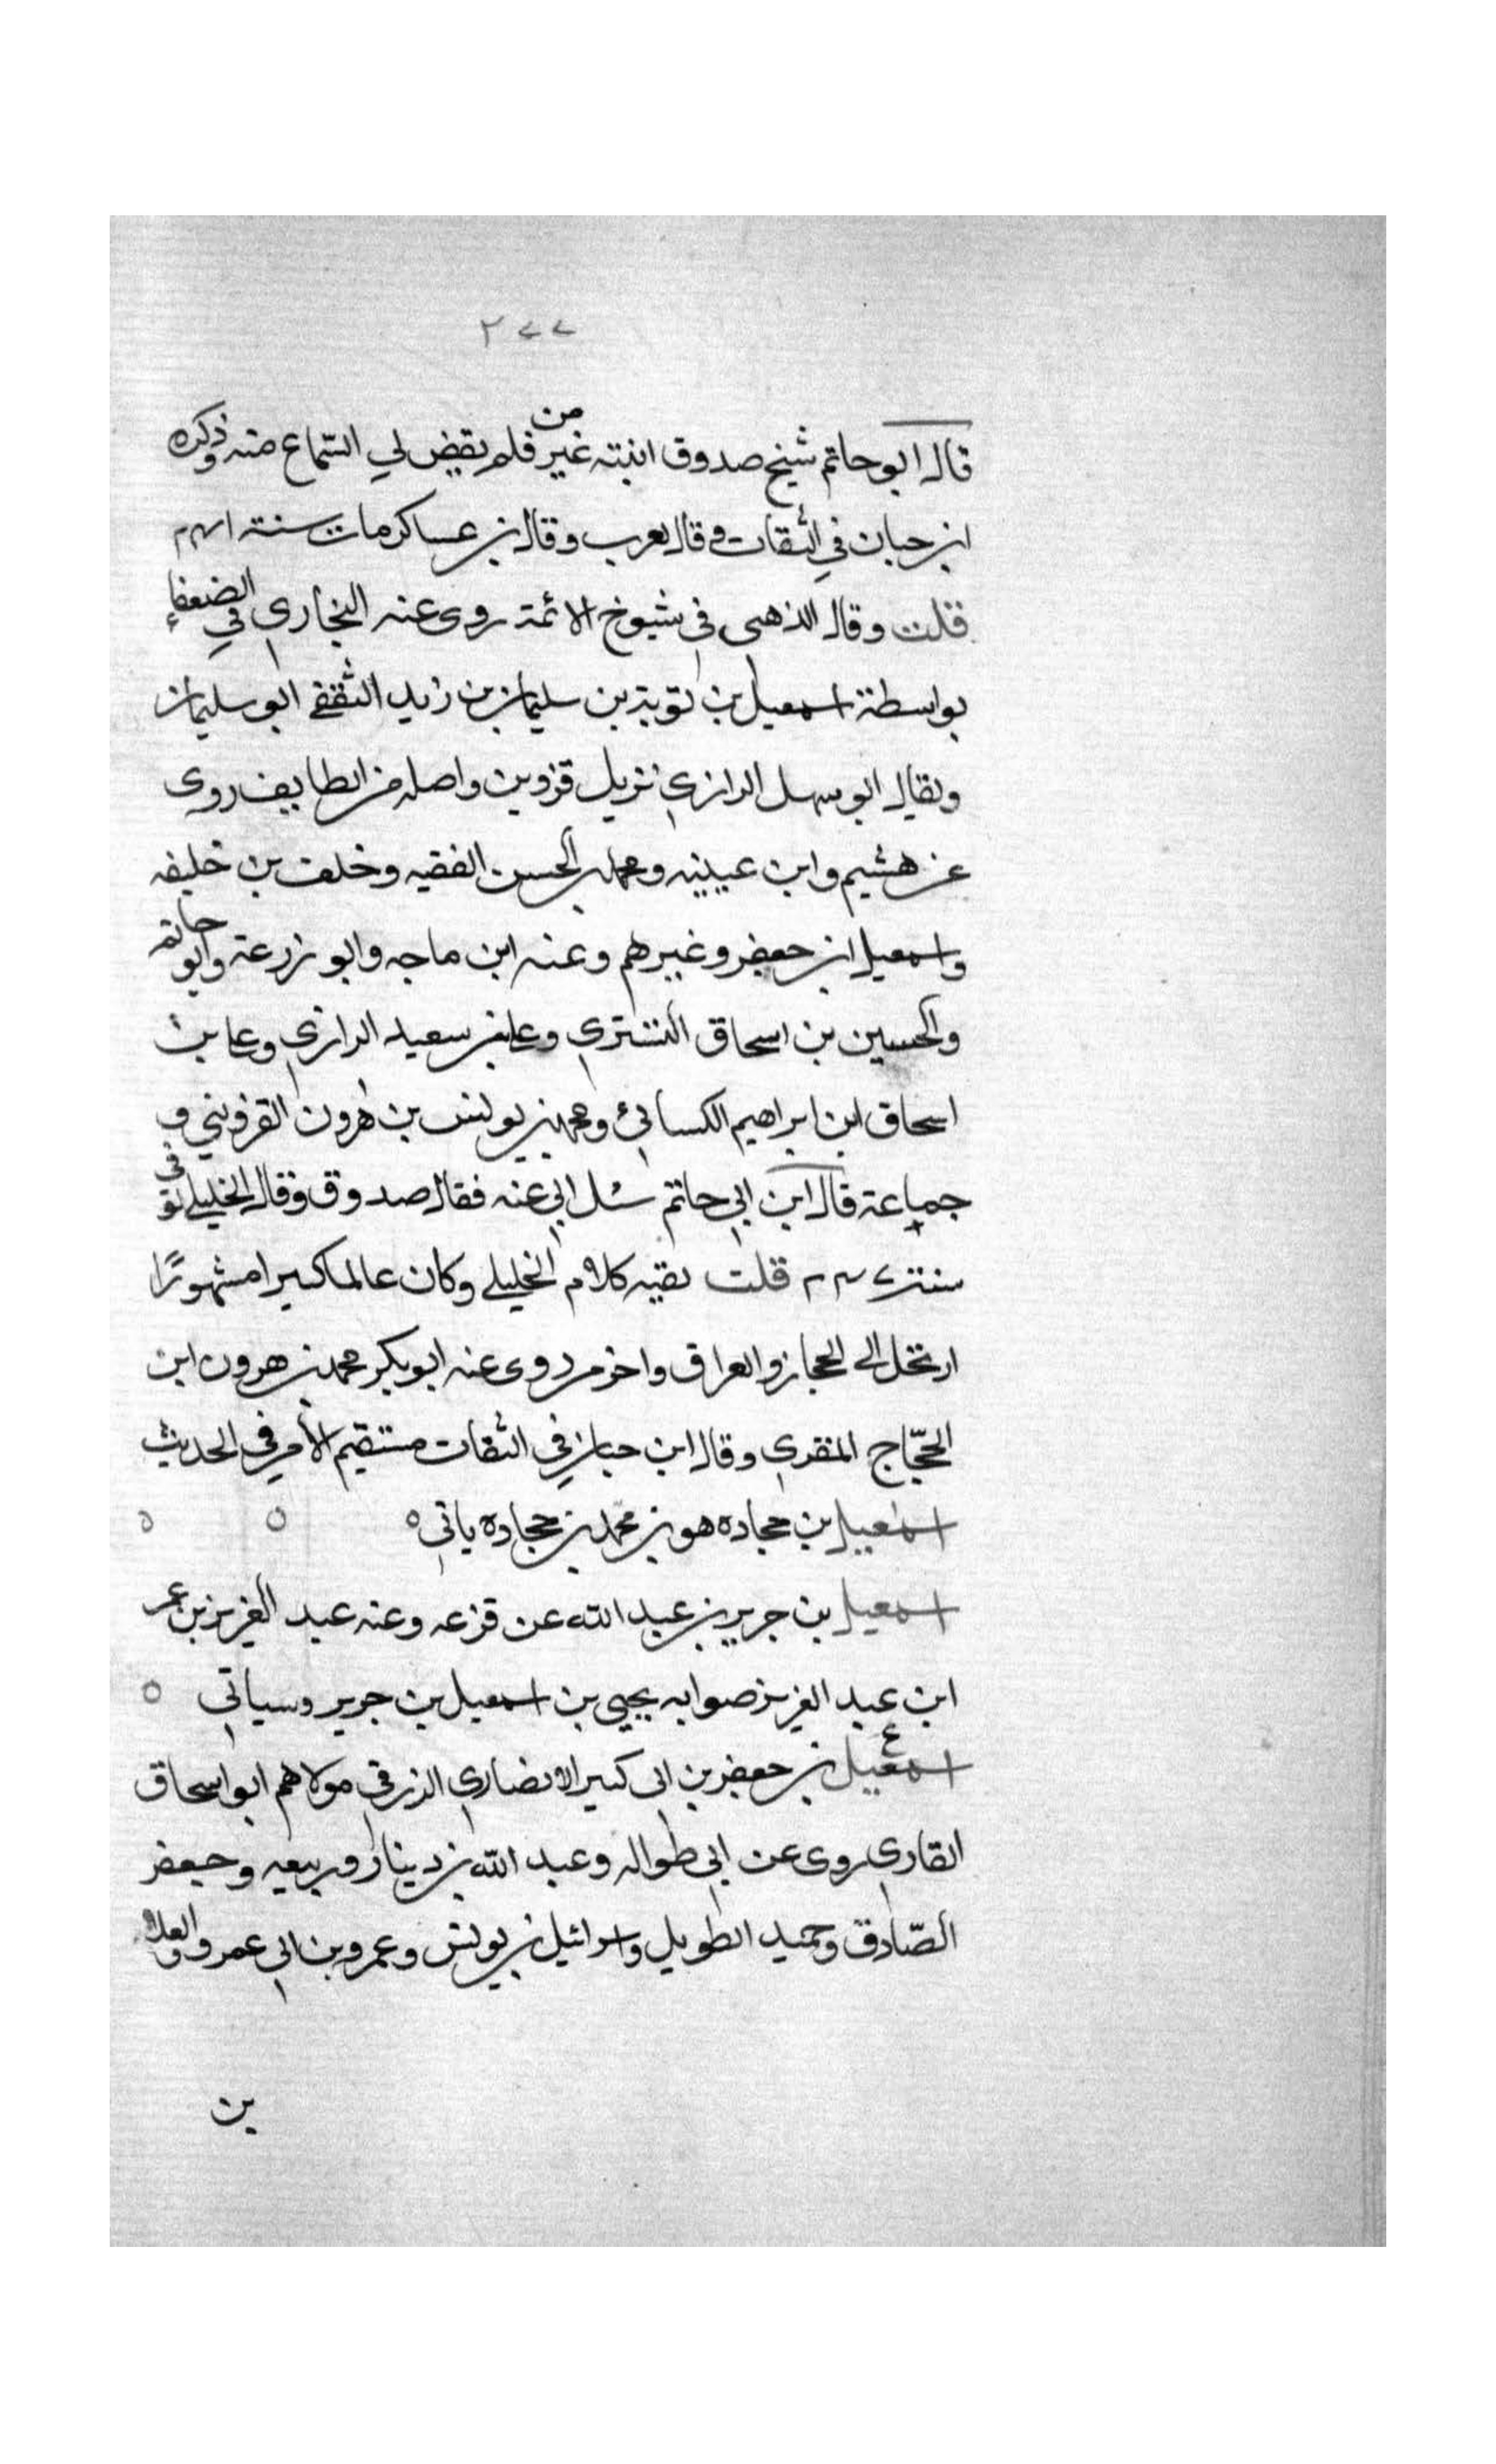 ٢٧٧
قال ابو حاتم شيخ صدوق اتيته غير من فلم يقض لي السّماع منه وذكره
ابن حبان في الثقات وقال يغرب وقال بن عساكر مات سنة ٢٣١
قلت وقال الذهبى فى شيوخ الائمة روى عنه البخارى في الضعفاء
بواسطة اسمعيل بن توبة بن سليمان بن زيد الثقفى ابو سليمان
ويقال ابو سهل الرازي نزيل قزوين واصله من الطايف روى
عن هشيم وابن عيينه ومحمد بن الحسن الفقيه وخلف بن خليفه
واسمعيل ابن جعفر وغيرهم وعنه ابن ماجه وابو زرعة وابو حاتم
والحسين بن اسحاق التسترى وعلى بن سعيد الرازي وعلى بن
اسحاق ابن ابراهيم الكسائى ومحمد بن يونس بن هرون القزوينى و
جماعة قال ابن ابي حاتم سئل ابى عنه فقال صدوق وقال الخليلى توفى
سنة ٢٤٧ قلت بقيه كلام الخليلى وكان عالما كبيرا مشهورًا
ارتحل الى الحجاز والعراق واخر من روى عنه ابو بكر محمد بن هرون ابن
الحجّاج المقرى وقال ابن حبان في الثقات مستقيم الأمر فى الحديث
اسمعيل بن جحاده هو بن محمد بن جحادة ياتى
اسمعيل بن جرير بن عبد الله عن قزعه وعنه عبد العزيز بن عمر
ابن عبد العزيز صوابه يحيى بن اسمعيل بن جرير وسياتى
ع
اسمعيل بن جعفر بن ابى كثير الانصارى الزرقى مولاهم ابو اسحاق
القارى روى عن ابى طواله وعبد الله بن دينار وربيعه وجعفر
الصّادق وحميد الطويل واسرائيل بن يونس وعمرو بن ابى عمرو والعلاء
بن